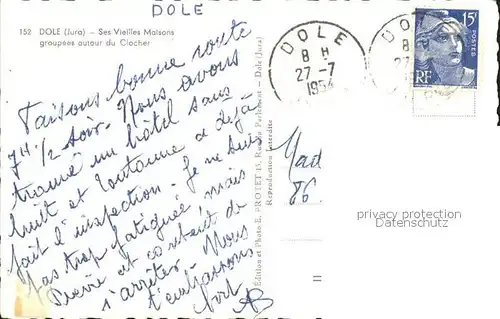 DOLE
152 DOLE (Jura) - Ses Vieilles Maisons
groupées autour du Clocher
DOLE
8 H
27 -7
1954
DO
8
27
15F
POSTES
RF
Faisons bonne route
7H 1/2 soir. Nous avons
trouvé un hôtel sans
bruit et a déjà
fait l'inspection. Je ne suis
pas trop fatiguée, mais
Pierre est content de
s'arrêter. Nous
t'embrassons
fort
AB
Édition et Photo E. PROTET 15, Rue du Parlement - Dole (Jura)
Reproduction Interdite
Mad
86
privacy protection
Datenschutz